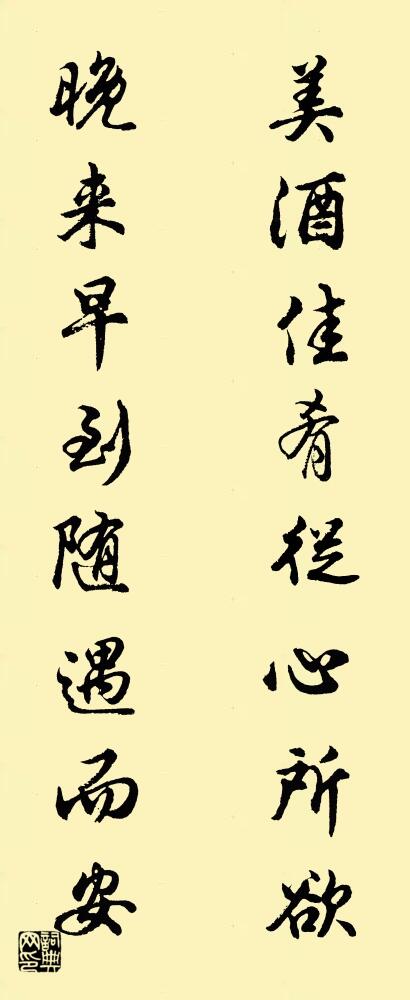 美酒佳肴從心所欲
晚来早到随遇而安
詞典网印